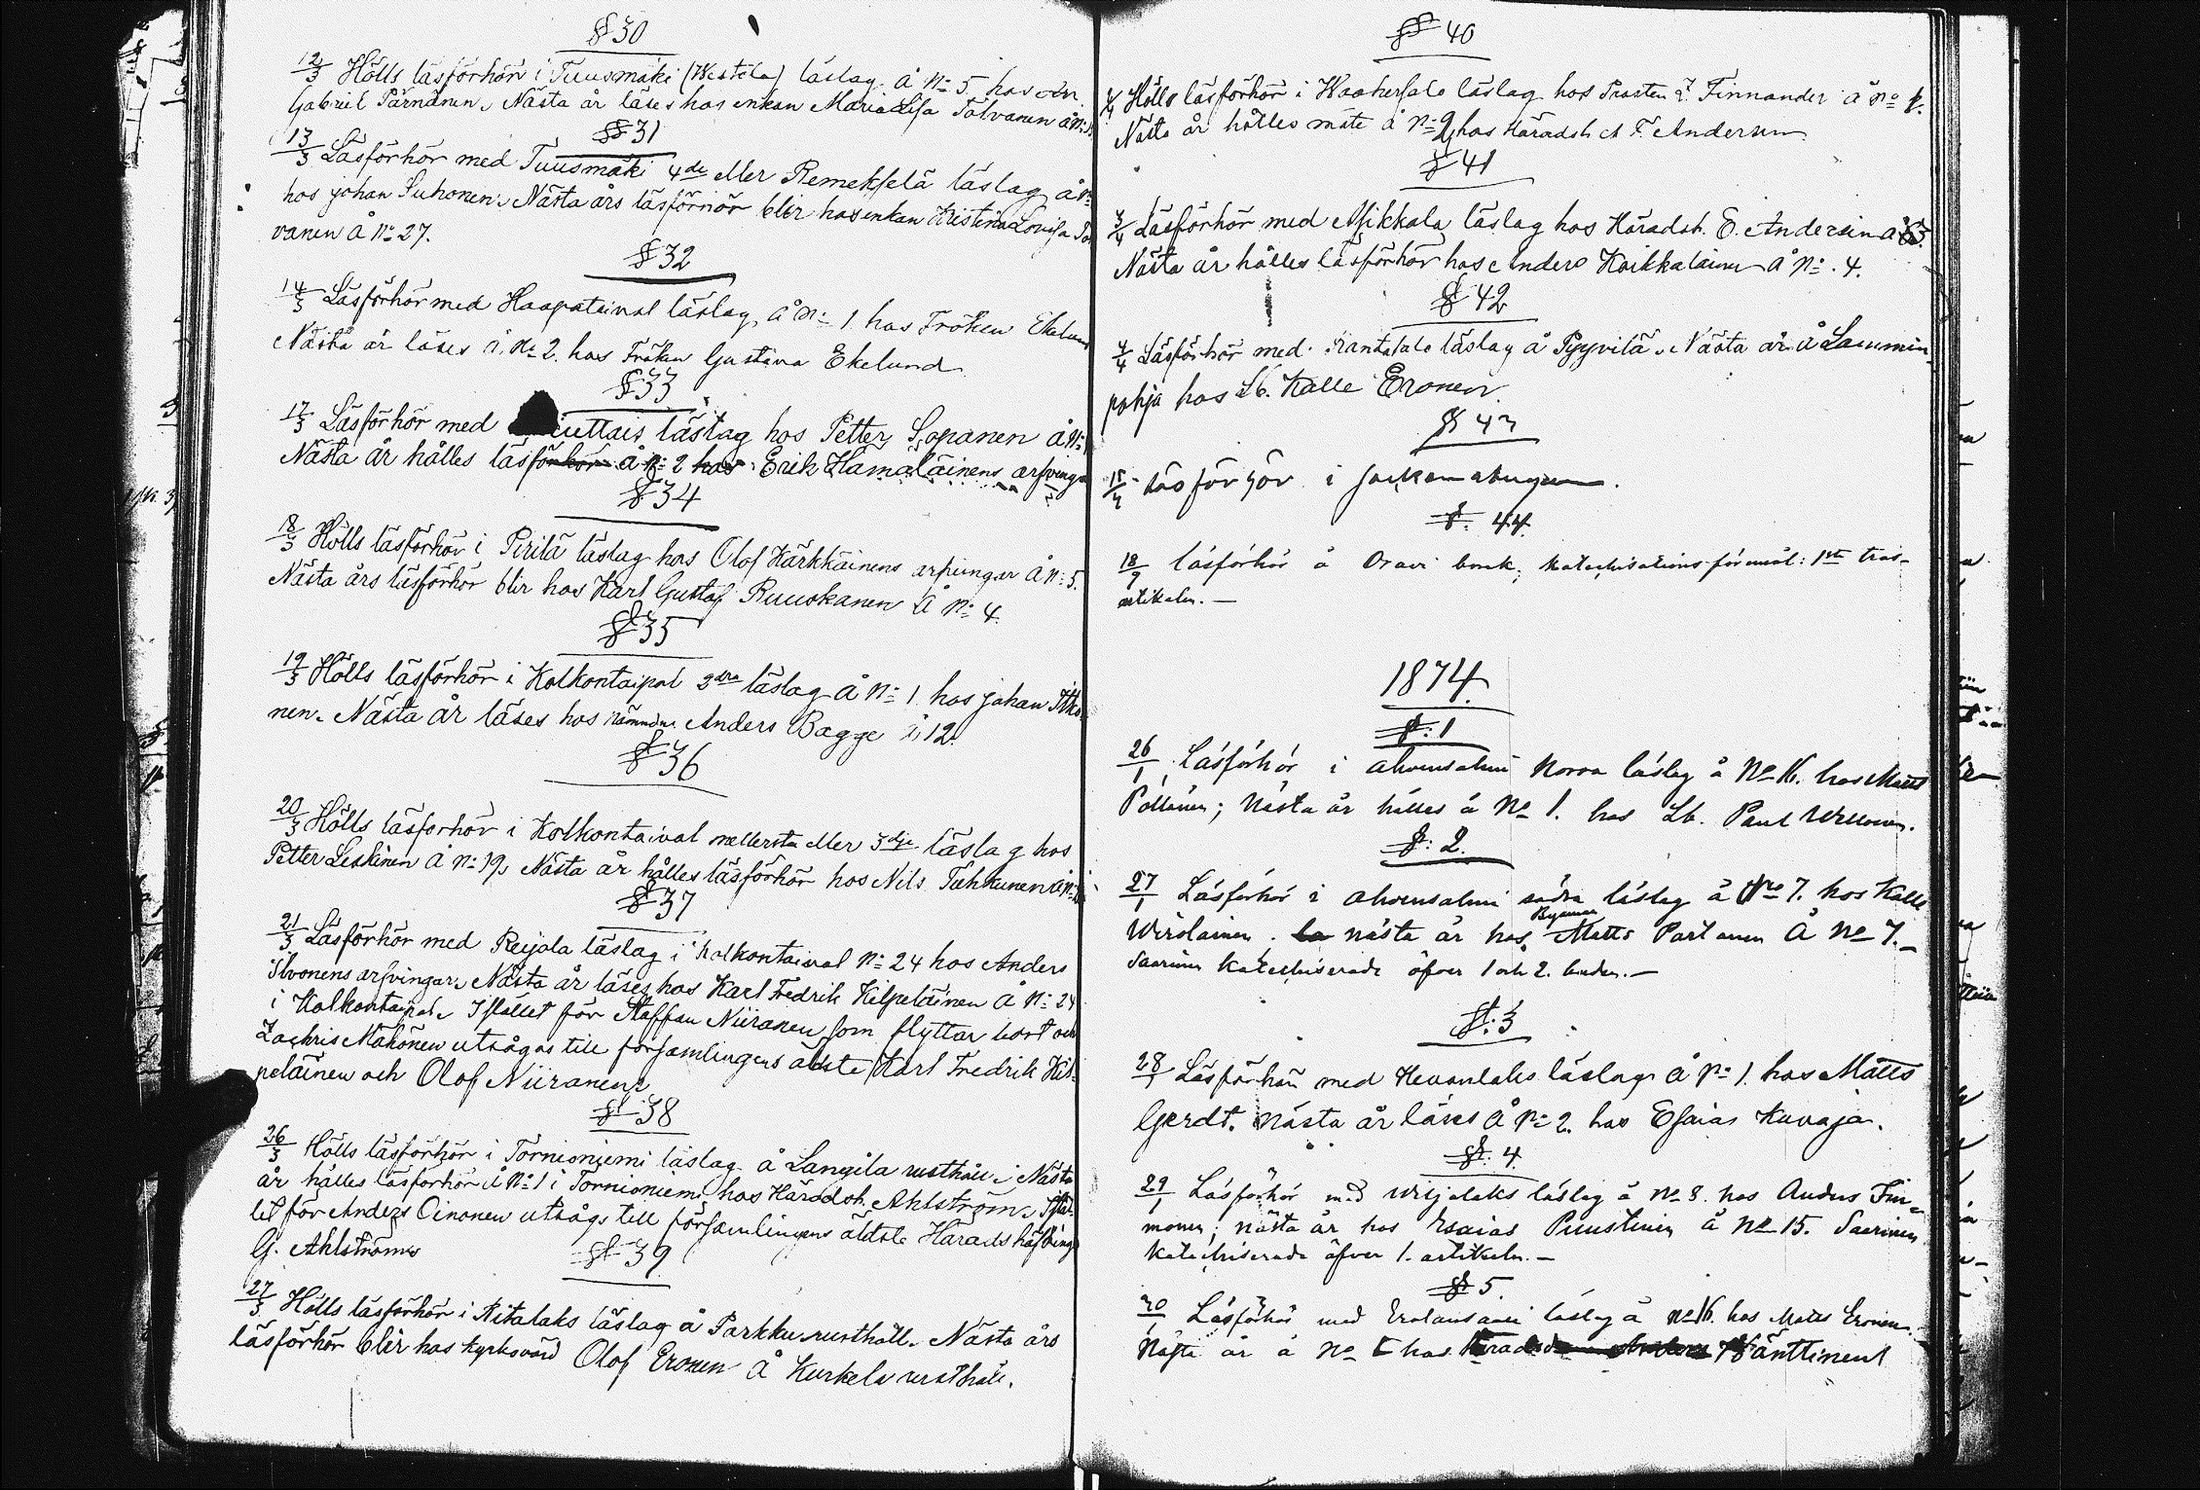 § 30
12/3 Hölls läsförhör i Tuusmäki (Westola) läslag å No 5 hos
Gabriel Pärnänen. Nästa år läses hos enkan Maria Lisa Tolvanen å No
§ 31
13/3 Läsförhör med Tuusmäki 4de eller Remekselä läslag å No
hos johan Suhonen. Nästa års läsförhör blir hos enkan Kristina Lovisa Tol
vanen å No 27.
§ 32
14/3 Läsförhör med Haapataival läslag å No 1 hos Fröken Ekelund
Nästa år läses å No 2. hos Fröken Gustava Ekelund
§ 33
17/3 Läsförhör med läslag hos Petter Sopanen å No
Nästa år hålles läsförhör å No 2 hos Erik Hämäläinens arfvingar
§ 34
18/3 Hölls läsförhör i Pirilä läslag hos Olof Kärkkäinens arfvingar å No 5.
Nästa års läsförhör blir hos Karl Gustaf Ruuskanen å No 4.
§ 35
19/3 Hölls läsförhör i Kolkontaipal 2dra läslag å No 1 hos johan Itko
nen. Nästa år läses hos nämndm Anders Bagge å 12.
§ 36
20/3 Hölls läsförhör i Kolkontaival mellersta eller 3dje läslag hos
Petter Leskinen å No 19. Nästa år hålles läsförhör hos Nils Tuhkunen å No
§ 37
21/3 Läsförhör med Reijola läslag i Kolkontaival No 24 hos Anders
Silvonens arfvingar. Nästa år läses hos Karl Fredrik Kilpeläinen å No 24
i Kolkontaipal. Istället för Staffan Niiranen som flyttar bort och
Zachris Mähönen utsågos till församlingens äldste Karl Fredrik Kil-
peläinen och Olof Niiranen.
§ 38
26/3 Hölls läsförhör i Tornioniemi läslag å Langila rusthåll. Nästa
år hålles läsförhör å No 1 i Tornioniemi hos Häradsh. Ahlström. Istäl-
let för Anders Oinonen utsågs till församlingens äldste Häradshöfding
G. Ahlström
§ 39
27/3 Hölls läsförhör i Ritalaks läslag å Parkku rusthåll. Nästa års
läsförhör blir hos kyrkovärd Olof Eronen å Kurkela rusthåll.
§ 40
Hölls läsförhör i Kaahersalo läslag hos Prosten Z. Finnander å No
Nästa år hålles möte å No 2 hos Häradsh A F. Andersin
§ 41
3/4 Läsförhör med Mikkala läslag hos Häradsh. E. Andersin å
Nästa år hålles läsförhör hos Anders Koikkalainen å No. 4.
§ 42
4/4 Läsförhör med Rantasalo läslag å Pyyvilä. Nästa år å Lammin-
pohja hos Lb. Kalle Eronen.
§ 43
15/4 Läsförhör i
§. 44
18/9 läsförhör å Oravi bruk; katechisationsföremål: 1sta tros-
artikeln. —
1874.
§. 1
26/1 Läsförhör i Ahvensalmi norra läslag å No 16. hos Matts
Pöllänen; Nästa år hålles å No 1. hos Lb. Paul
§. 2.
27/1 Läsförhör i Ahvensalmi södra läslag å No 7. hos Kalle
Wirolainen. nästa år hos Byeman Matts Partanen å No 7. —
Saarinen katechiserade öfver 1 och 2. buden. —
§. 3
28/1 Läsförhör med Hevonlaks läslag å No 1. hos Matts
Gerdt. Nästa år läses å No 2. hos Esaias Kuvaja.
§. 4.
29/1 Läsförhör med Wiljolaks läslag å No 8. hos Anders Him-
monen; nästa år hos Esaias Puustinen å No 15. Saarinen
katechiserade öfver 1. artikeln. —
§ 5.
30/1 Läsförhör med Erolansaari läslag å No 16. hos Matts Eronen.
Nästa år å No 1 hos Häradsd Wänttinent